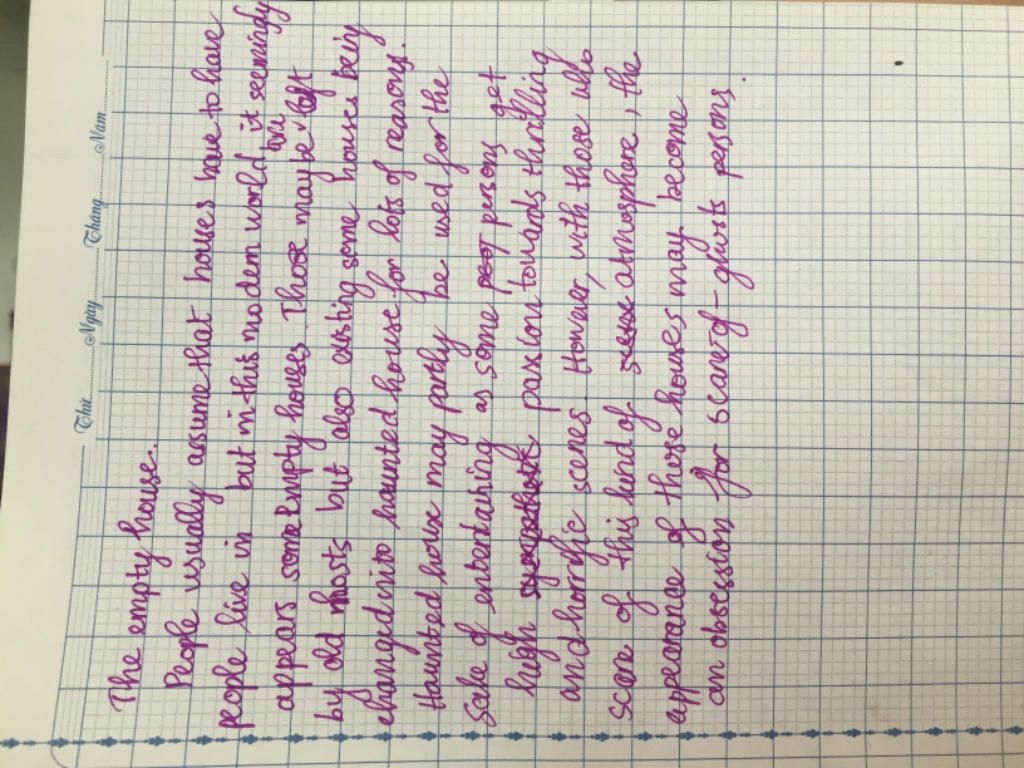 Thứ............Ngày............Tháng............Năm............
The empty house.
People usually assume that houses have to have
people live in but in this modern world, it seemingly
appears some empty houses. Those may be are left
by old hosts but also existing some houses being
changed into haunted house for lots of reasons.
Haunted house may partly be used for the
sake of entertaining as some persons get
high passion towards thrilling
and horrific scenes. However, with those who
scare of this kind of atmosphere, the
appearance of those houses may become
an obsession for scare-of-ghosts persons.